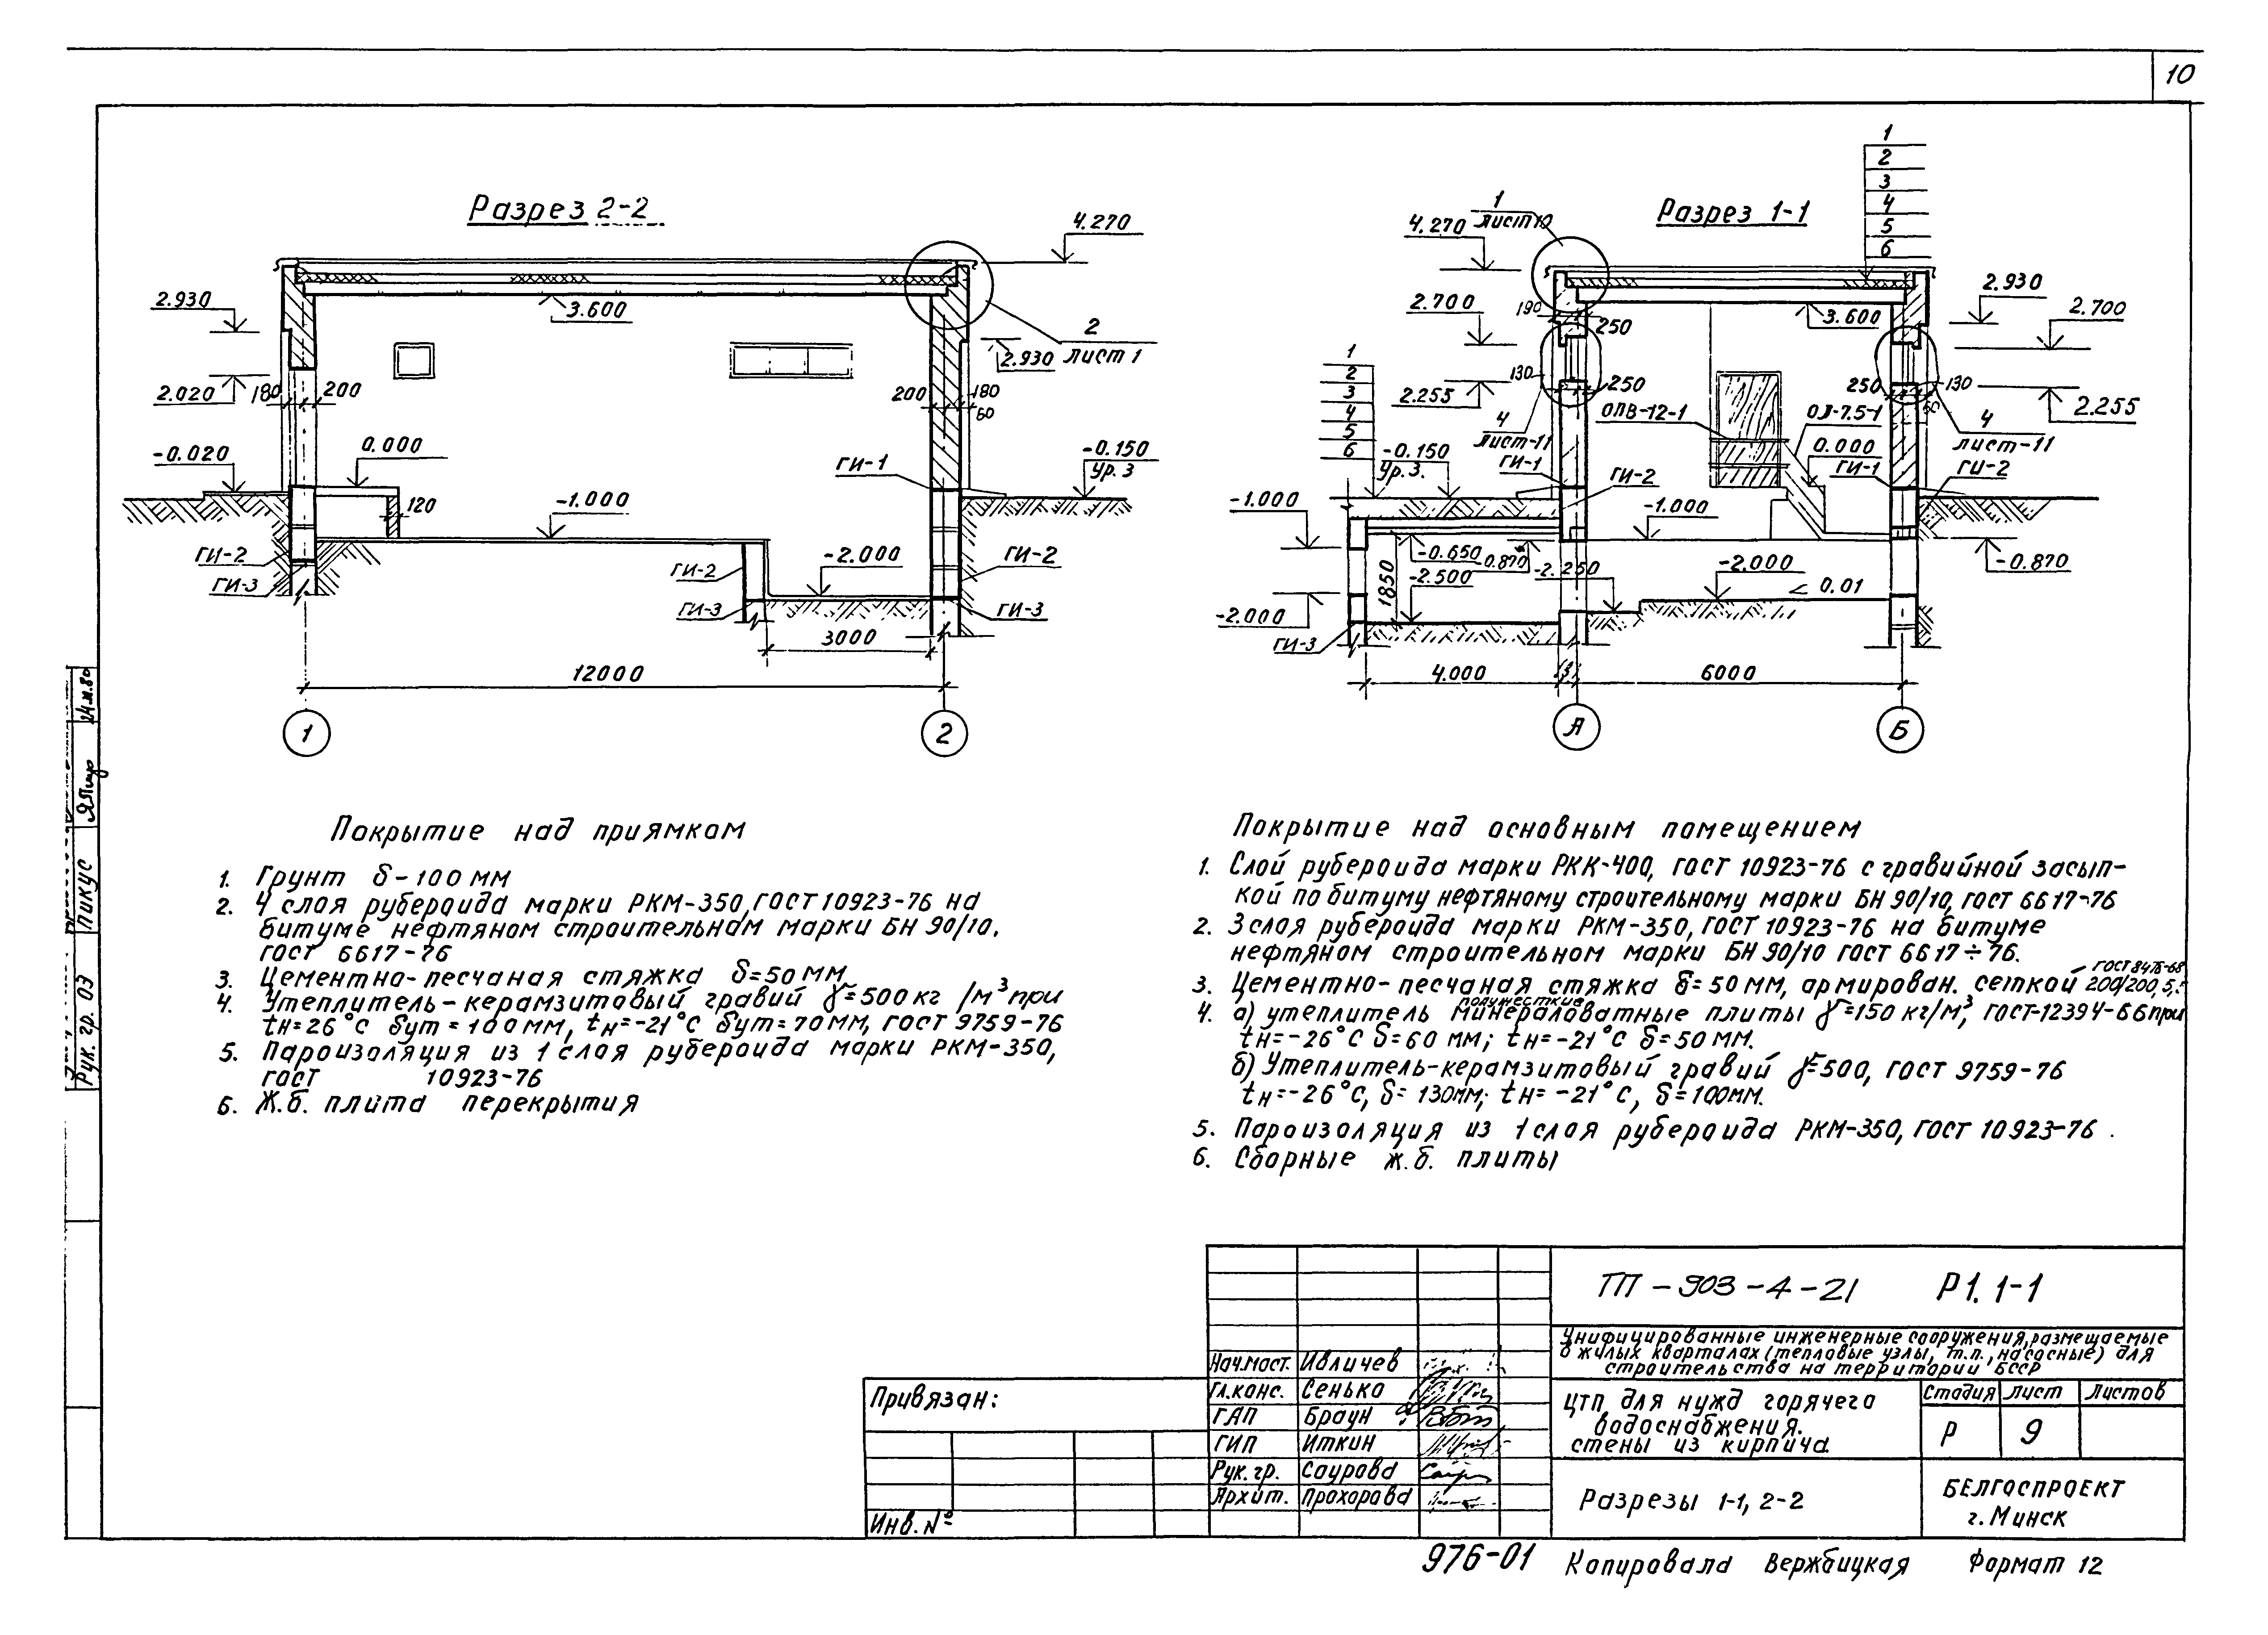 10
Разрез 2-2
4.270
2.930
3.600
2
лист 1
2.930
2.020
180
200
200
180
60
-0.020
0.000
ГИ-1
-0.150
Ур.З
120
-1.000
ГИ-2
ГИ-3
ГИ-2
ГИ-3
-2.000
ГИ-2
ГИ-3
3000
12000
1
2
Разрез 1-1
1
лист 10
1
2
3
4
5
6
4.270
2.700
190
250
3.600
2.930
2.700
1
2
3
4
5
6
130
250
2.255
ОПВ-12-1
4
лист-11
ОЛ-7.5-1
250
130
60
2.255
4
лист-11
-0.150
Ур.З.
ГИ-1
ГИ-2
0.000
ГИ-1
ГИ-2
-1.000
-1.000
-0.650
-0.870
-2.250
-2.500
1850
-2.000
0.01
-0.870
-2.000
ГИ-3
4.000
6000
А
Б
Покрытие над приямком
1. Грунт δ-100мм
2. 4 слоя рубероида марки РКМ-350, ГОСТ 10923-76 на
битуме нефтяном строительнам марки БН 90/10.
ГОСТ 6617-76
3. Цементно-песчаная стяжка δ=50мм
4. Утеплитель-керамзитовый гравий γ=500кг/м³ при
tн=26°С δут=100мм, tн=-21°С δут=70мм, ГОСТ 9759-76
5. Пароизоляция из 1 слоя рубероида марки РКМ-350,
ГОСТ 10923-76
6. Ж.б. плита перекрытия
Покрытие над основным помещением
1. Слой рубероида марки РКК-400, ГОСТ 10923-76 с гравийной засып-
кой по битуму нефтяному строительному марки БН 90/10, ГОСТ 6617-76
2. 3 слоя рубероида марки РКМ-350, ГОСТ 10923-76 на битуме
нефтяном строительном марки БН 90/10 ГОСТ 6617÷76.
ГОСТ 8478-66
3. Цементно-песчаная стяжка δ=50мм, армирован. сеткой 200/200,5,5
полужесткие
4. а) утеплитель минераловатные плиты γ=150 кг/м³, ГОСТ-12394-66 при
tн=-26°С δ=60 мм; tн=-21°С δ=50мм.
б) Утеплитель-керамзитовый гравий γ=500, ГОСТ 9759-76
tн=-26°С, δ=130мм; tн=-21°С, δ=100мм.
5. Пароизоляция из 1 слоя рубероида РКМ-350, ГОСТ 10923-76.
6. Сборные ж.б. плиты
ТП-903-4-21 Р1.1-1
Унифицированные инженерные сооружения, размещаемые
в жилых кварталах (тепловые узлы, т.п., насосные) для
строительства на территории БССР
Нач.маст. Ивличев
Гл.конс. Сенько
ГАП Браун
ГИП Иткин
Рук.гр. Саурова
Архит. Прохорова
Привязан:
Инв.№
ЦТП для нужд горячего
водоснабжения.
стены из кирпича.
Стадия Лист Листов
Р 9
Разрезы 1-1, 2-2
БЕЛГОСПРОЕКТ
г.Минск
976-01
Копировала Вержбицкая
Формат 12
Рук. гр. ОЭ
Пикус